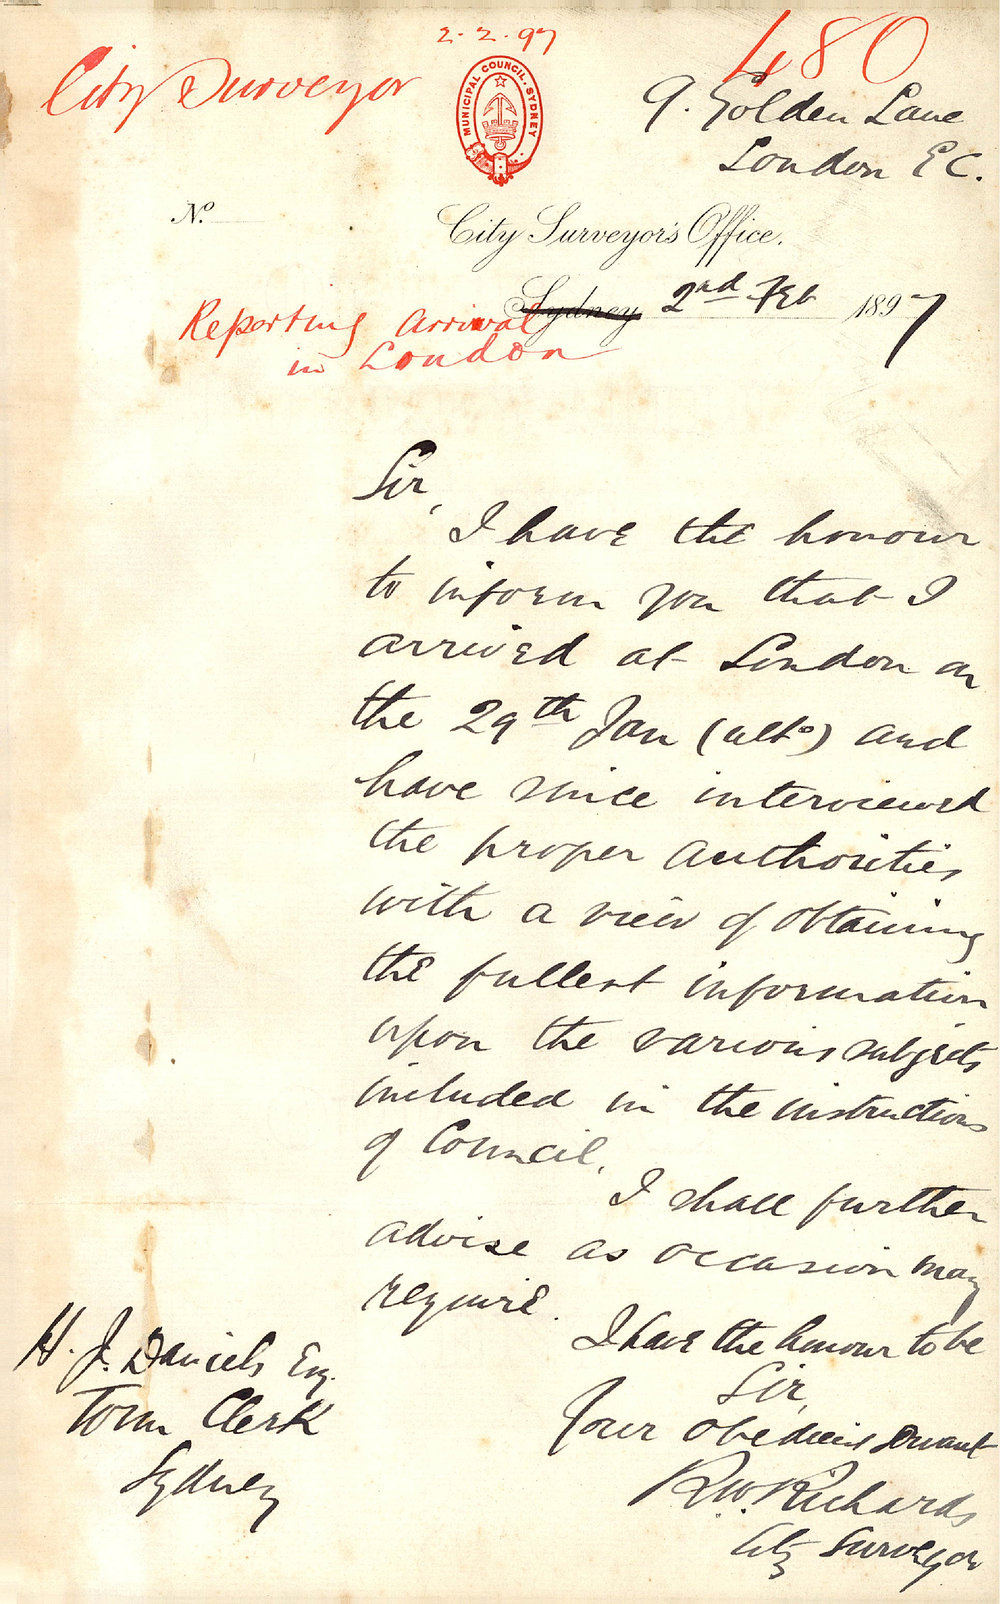 2.2.97
480
City Surveyor
MUNICIPAL COUNCIL. SYDNEY
9. Golden Lane
London EC.
No.
City Surveyor's Office.
Sydney 2nd Feb 1897
Reporting arrival
in London
Sir,
I have the honour
to inform you that I
arrived at London on
the 29th Jan (ulto) and
have since interviewed
the proper authorities
with a view of obtaining
the fullest information
upon the various subjects
included in the instructions
of Council.
I shall further
advise as occasion may
require.
I have the honour to be
Sir,
Your obedient servant
R.W. Richards
City Surveyor
H. J. Daniels Esq.
Town Clerk
Sydney